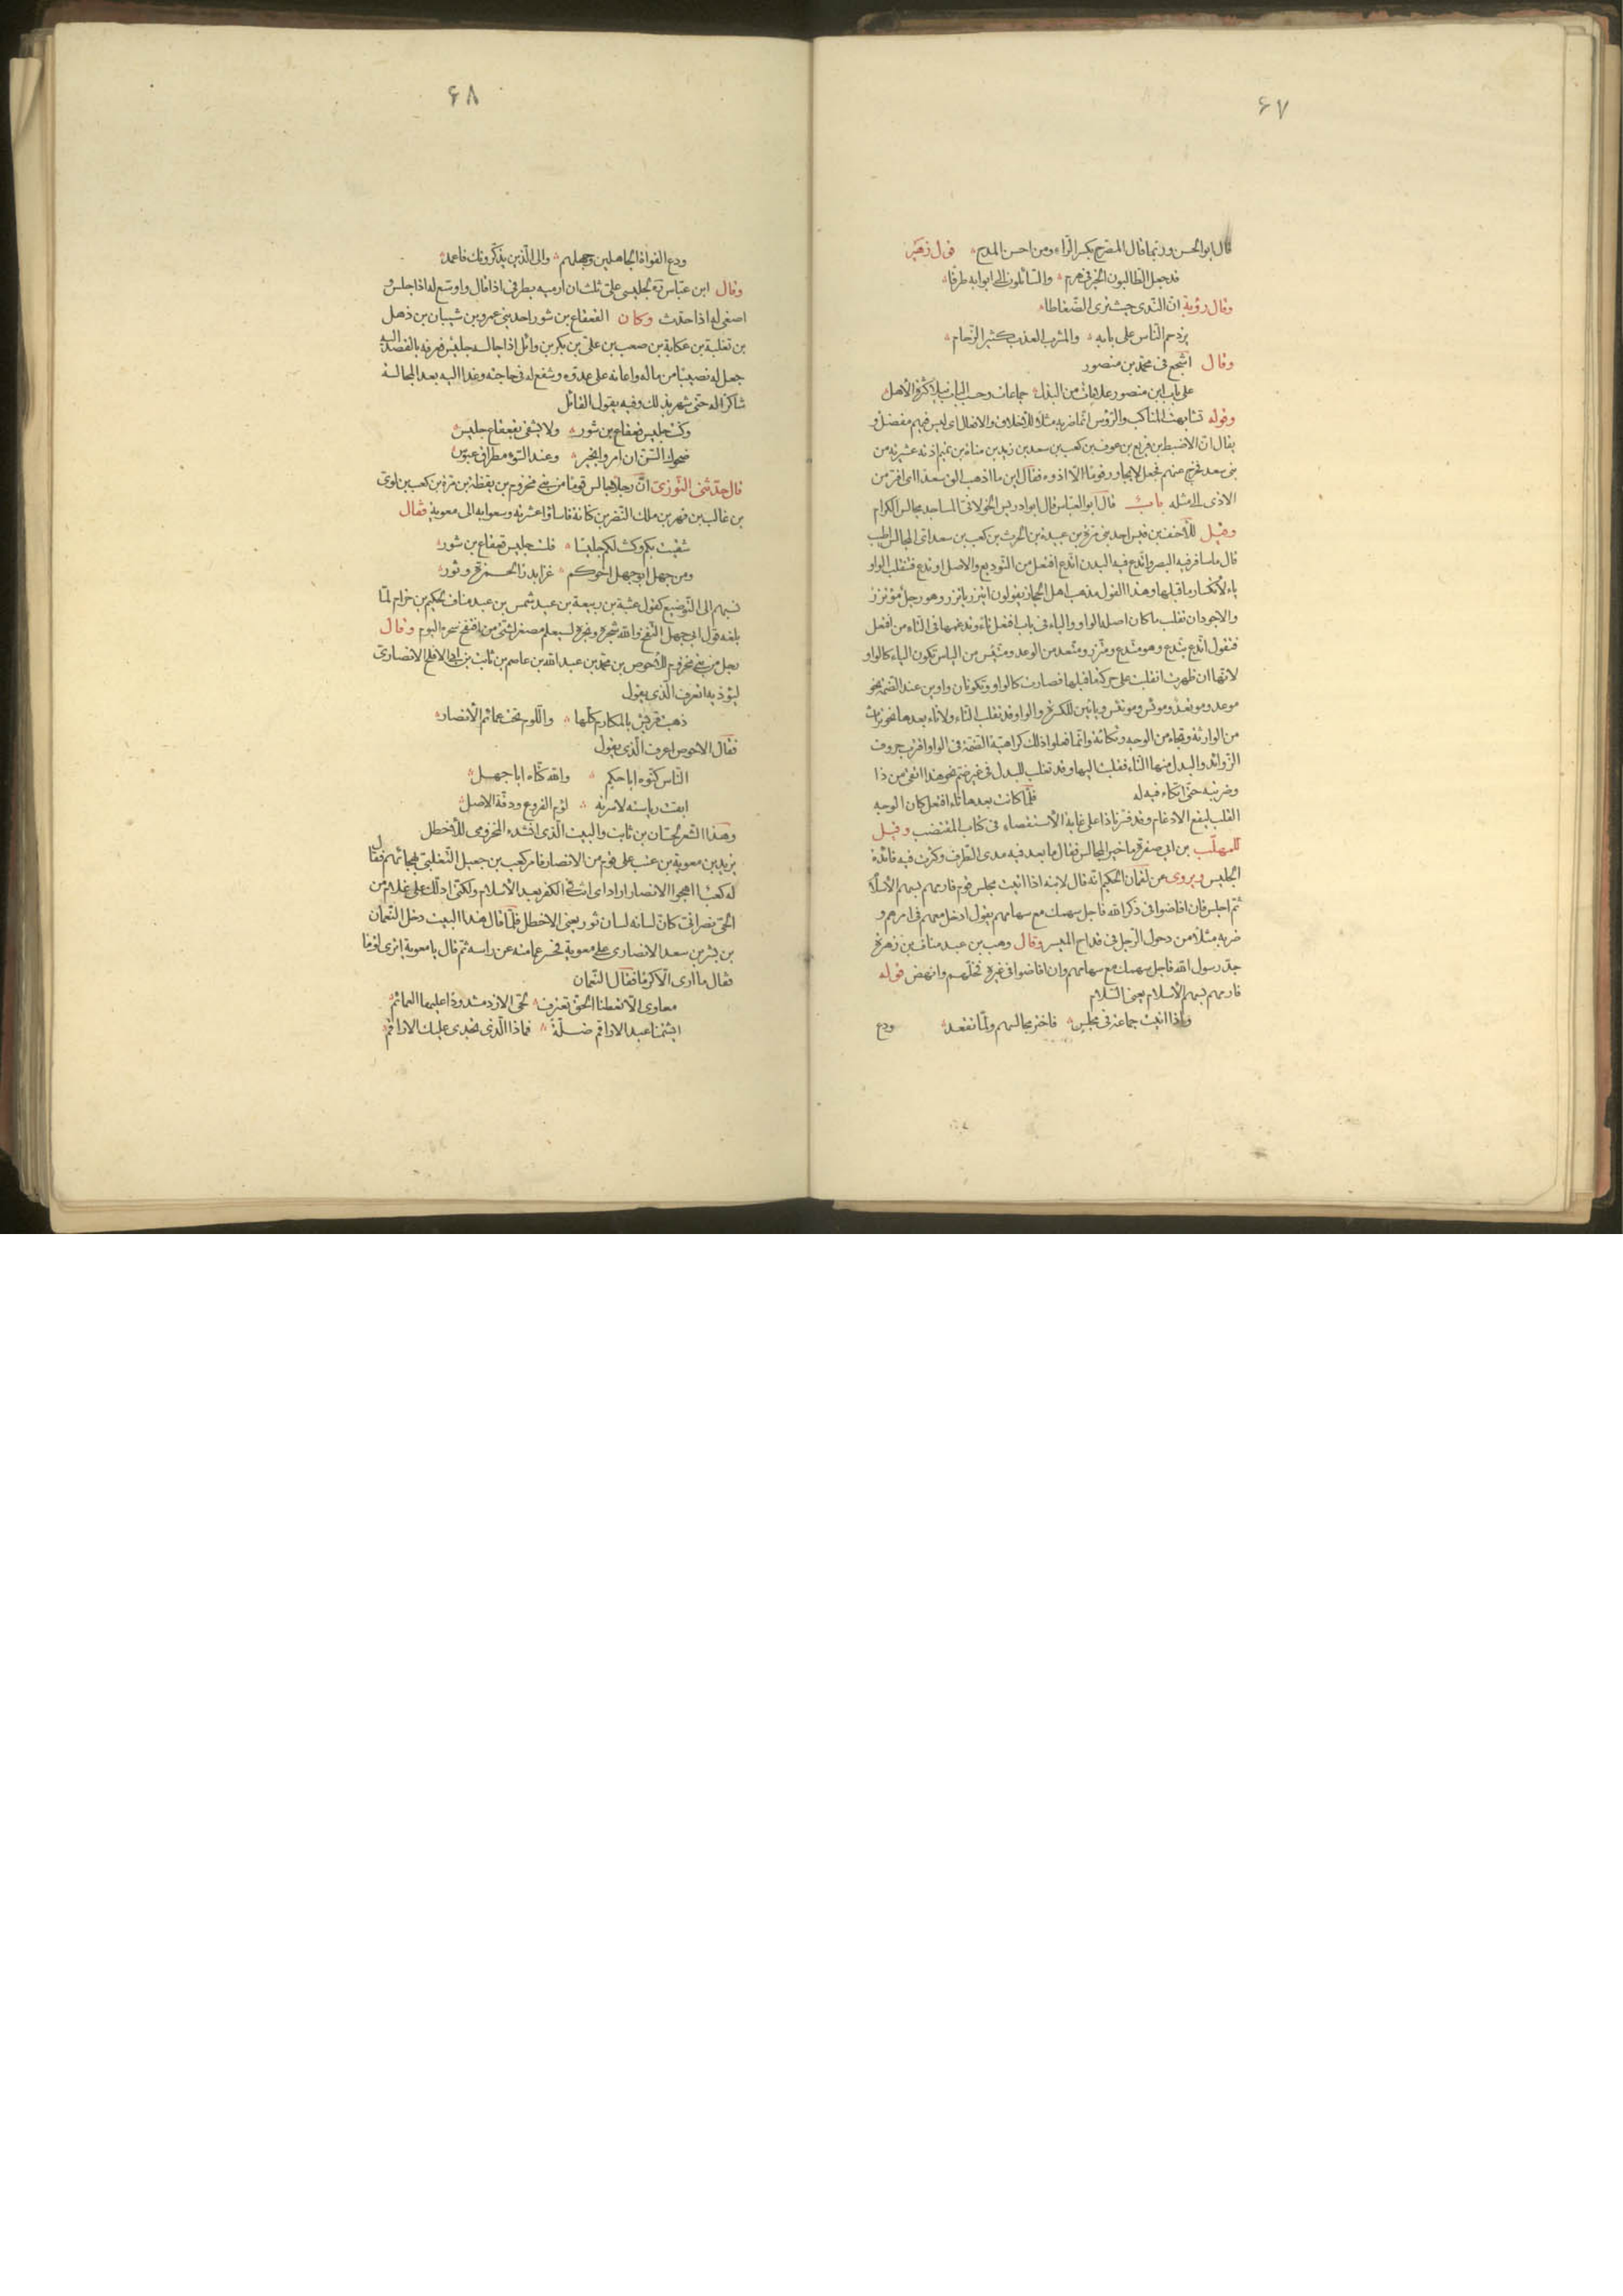 ۶۷
قال ابو الحسن وربّما قال المضرج بكسر الرّاء ومن احسن المدح قول زهير
قد جعل الطالبون الخير فى هرم والسّائلون الى ابوابه طرقا
وقال رؤبة انّ النّدى حيث ترى الضّغاطا
يزدحم النّاس على بابه والمشرب العذب كثير الزّحام
وقال اشجع فى محمّد بن منصور
على باب ابن منصور علامات من البذل جماعات وحسب الباب نبلا كثرة الأهل
وقوله تشابهت المناكب والرّؤس انّما ضربه مثلا للأخلاق والافعال اى ليس فيهم مفضّل و
يقال انّ الاضبط بن قريع بن عوف بن كعب بن سعد بن زيد بن مناة بن تميم اذته عشيرته من
بنى سعد فخرج عنهم فجعل لا يجاور قوما الّا اذوه فقال اين ما اذهب الق سعدا اى افرّ من
الاذى الى مثله باب قال ابو العباس قال ابو ادريس الخولانى المساجد مجالس الكرام
وقيل للأحنف بن قيس احد بنى مرّة بن عبيد بن الحرث بن كعب بن سعد اىّ المجالس اطيب
قال ما سافر فيه البصر واتّدع فيه البدن اتّدع افتعل من التّوديع والاصل اوتدع فتنقلب الواو
ياء لانكسار ما قبلها وهذا القول مذهب اهل الحجاز يقولون ايتزر ياتزر وهو رجل موتزر
والاجود ان تقلب ما كان اصله الواو والياء فى باب افتعل تاء وتدغمها فى التاء من افتعل
فتقول اتّدع يتّدع وهو متّدع ومتّزر ومتّعد من الوعد ومتّئس من اليأس تكون الياء كالواو
لانّها ان ظهرت انقلبت على حركة ما قبلها فصارت كالواو وتكونان واوين عند الضمة نحو
موعد وموتعد وموئس وموتئس وياءين للكسرة والواو قد تقلب التاء ولا تاء بعدها نحو تراث
من الوارثة وتجاه من الوجه وتكأة وانّما فعلوا ذلك كراهية الضّمّة فى الواو واقرب حروف
الزّوائد والبدل منها التاء فقلبت اليها وقد تقلب للبدل فى غير ضمّ نحو هذا اتقى من ذا
وضربته حتّى اتكاء فيه له فلمّا كانت بعدها تاء افتعل كان الوجه
القلب ليقع الادغام وقد فسّرنا ذا على غاية الأستقصاء فى كتاب المقتضب وقيل
للمهلّب بن ابى صفرة ما خير المجالس فقال ما بعد فيه مدى الطّرف وكثرت فيه فائدة
الجليس ويروى عن لقمان الحكيم انّه قال لابنه اذا اتيت مجلس قوم فارمهم بسهم الأسلام
ثمّ اجلس فان افاضوا فى ذكر الله فاجل سهمك مع سهامهم يقول ادخل معهم فى امرهم و
ضربه مثلا من دخول الرّجل فى قداح الميسر وقال وهب بن عبد مناف بن زهرة
جدّ رسول الله فاجل سهمك مع سهامهم وان افاضوا فى غيره فخلّهم وانهض قوله
فارمهم بسهم الأسلام يعنى السّلام
واذا اتيت جماعة فى مجلس فاختر مجالسهم ولمّا تقعد ودع
۶۸
ودع الغواة الجاهلين وجهلهم والى الّذين يذكّرونك فاعمد
وقال ابن عبّاس ره لجليسى علىّ ثلث ان ارميه بطرفى اذا اقبل واوسّع له اذا جلس و
اصغى له اذا حدّث وكان القعقاع بن شور احد بنى عمرو بن شيبان بن ذهل
بن ثعلبة بن عكاية بن صعب بن علىّ بن بكر بن وائل اذا جالسه جليس فعرفه بالقصد اليه
جعل له نصيبًا من ماله واعانه على عدوّه وشفع له فى حاجته وغدا اليه بعد المجالسة
شاكرًا له حتّى شهر بذلك وفيه يقول القائل
وكنت جليس قعقاع بن شور ولا يشقى بقعقاع جليس
ضحوك السّنّ ان امروا بخير وعند السّوء مطراق عبوس
قال حدّثنى التّوزى انّ رجلا جالس قومًا من بنى مخزوم بن يقظة بن مرّة بن كعب بن لوىّ
بن غالب بن فهر بن ملك النّضر بن كنانة فاساؤا عشرته وسعوا به الى معوية فقال
شقيت بكم وكنت لكم جليسًا فلست جليس قعقاع بن شور
ومن جهل ابو جهل اخوكم غزا بدرًا بمجمرة وتور
نسبهم الى التّوضيع كقول عتبة بن ربيعة بن عبد شمس بن عبد مناف لحكيم بن حزام لمّا
بلغه قول ابى جهل انتفخ والله سحره سيعلم مصفّر استه من انتفخ سحره اليوم وقال
رجل من بنى مخزوم للأحوص بن محمّد بن عبد الله بن عاصم بن ثابت بن ابى الاقلح الانصارىّ
ليؤذيه اتعرف الّذى يقول
ذهبت قريش بالمكارم كلّها واللّوم تحت عمائم الأنصار
فقال الاحوص اعرف الّذى يقول
النّاس كنّوه ابا حكيم والله كنّاه ابا جهل
ابقت رياسته لاسرته لؤم الفروع ودقّة الاصل
وهذا الشّعر لحسّان بن ثابت والبيت الّذى انشده المخزومى للأخطل
يزيد بن معوية من عتب على قوم من الانصار فامر كعب بن جعيل التّغلبىّ بهجائهم فقال
له كعب ااهجوا الانصار ارادّى انت الى الكفر بعد الأسلام ولكنّى ادلّك على غلام من
الحىّ نصرانىّ كانّ لسانه لسان ثور يعنى الاخطل فلمّا قال هذا البيت دخل النّعمان
بن بشير بن سعد الانصارى على معوية فحسر عمامته عن راسه ثمّ قال يا معوية اترى لؤما
فقال ما ارى الّا كرمًا فقال النّعمان
معاوى الّا تعطنا الحقّ تعترف لحى الازد مشدودًا عليها العمائم
ايشتمنا عبد الاراقم ضلّة فماذا الّذى تجدى عليك الاراقم